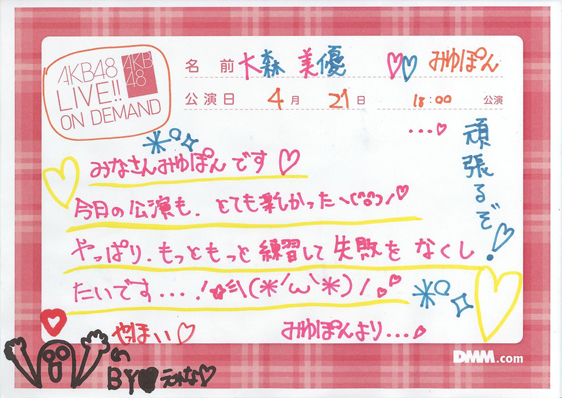 AKB48
LIVE!!
ON DEMAND
AKB
48
名前 大森 美優 ♡♡ みゆぽん
公演日 4月 21日 18:00 公演
...♡
頑張るぞ!♡
みなさんみゆぽんです♡
今日の公演も、とても楽しかったヽ(^o^)ノ♡
やっぱり、もっともっと練習して失敗をなくし
たいです...!☆彡\(*´ω`*)/♡
やほい♡
みゆぽんより...♡
BY♥えみな♡
DMM.com